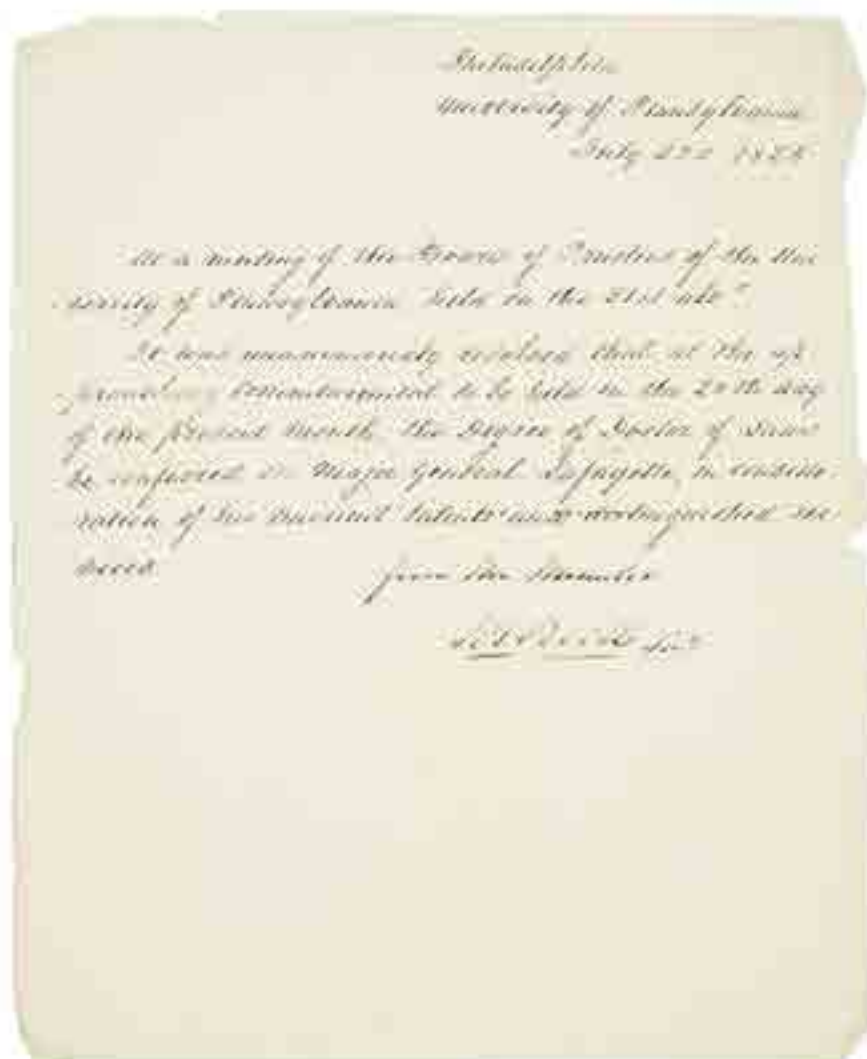 Philadelphia
University of Pennsylvania
July 22d 1825
At a meeting of the Board of Trustees of the Uni
versity of Pennsylvania held on the 21st
It was unanimously resolved that at the ap
proaching Commencement to be held on the 28th day
of the present month, the Degree of Doctor of Laws
be conferred on Major General Lafayette, in conside
ration of his eminent talents and distinguished ser
vices
from the Minutes